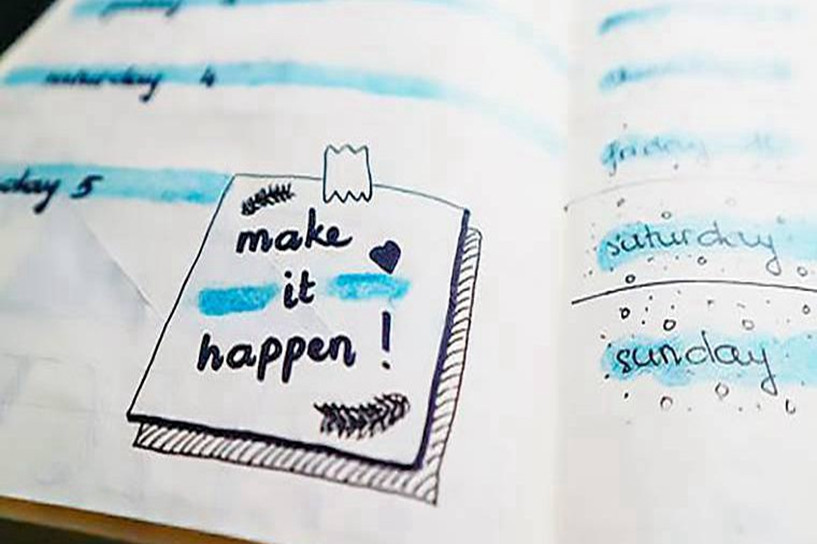 saturday 4
day 5
make
it
happen !
friday
saturday
sunday